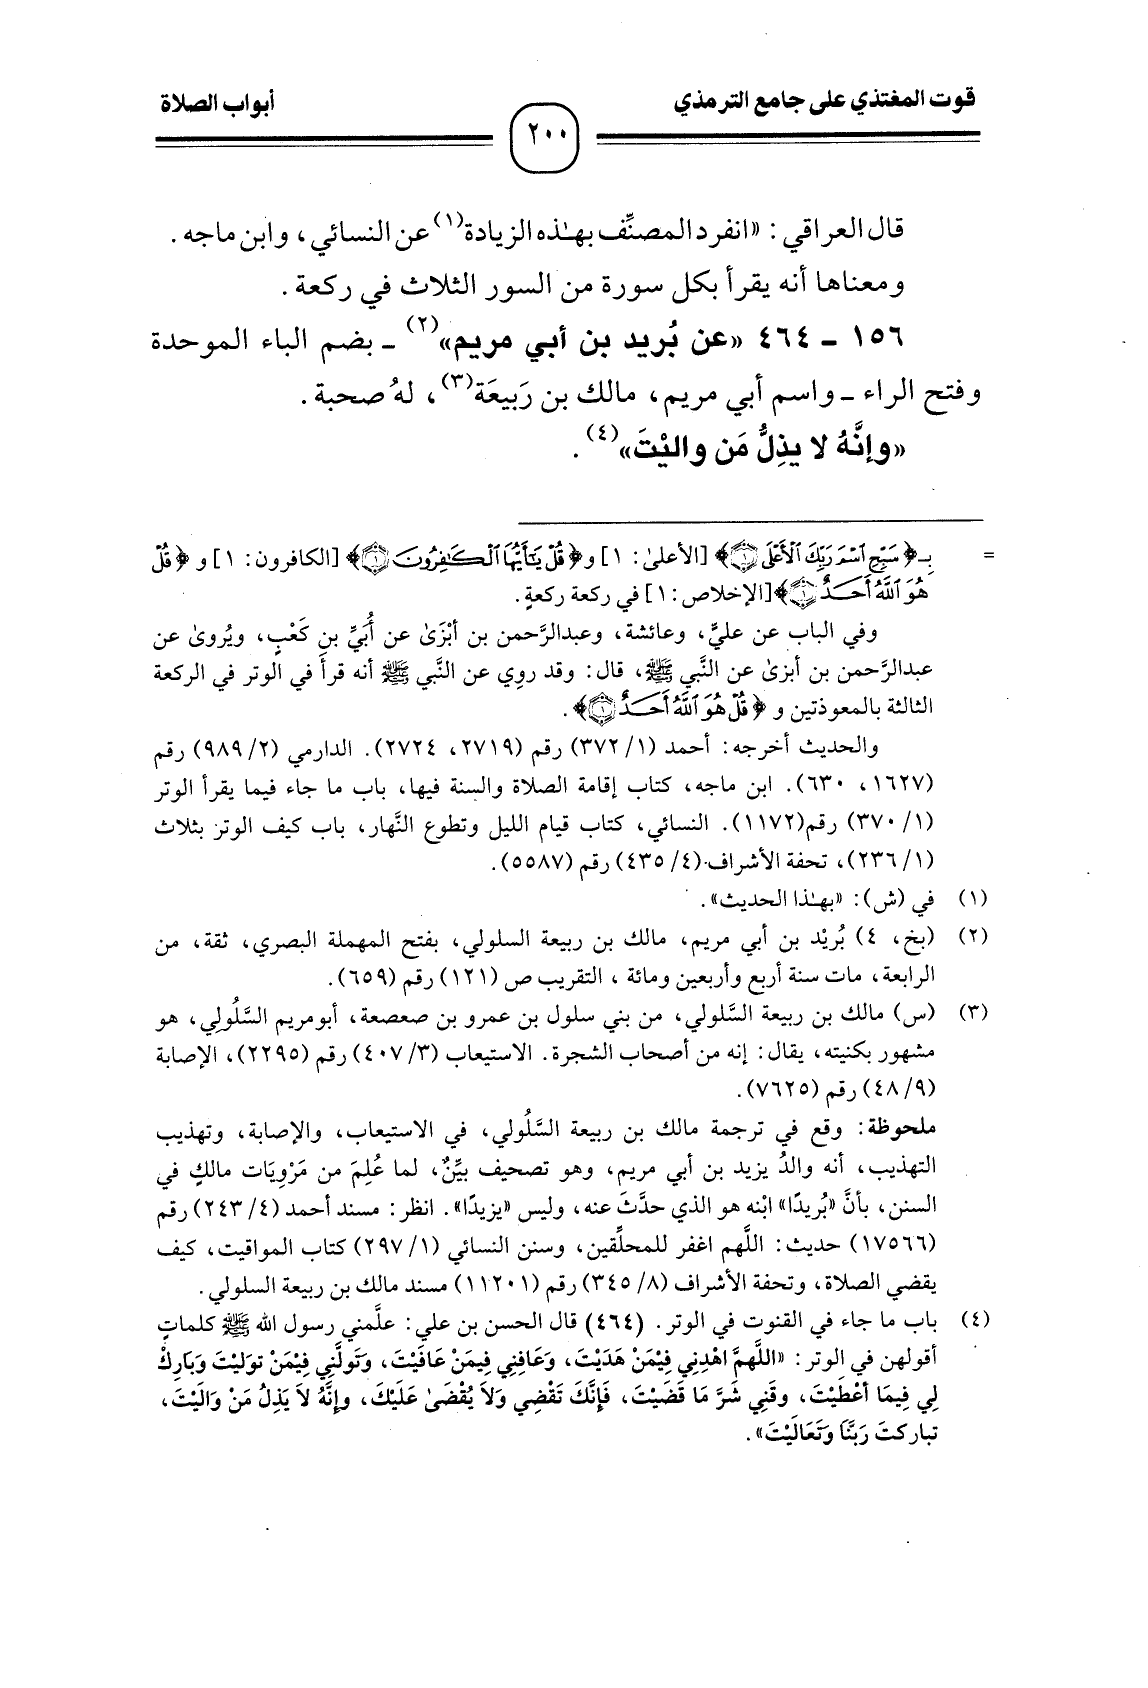 قوت المغتذي على جامع الترمذي
٢٠٠
أبواب الصلاة
قال العراقي: «انفرد المصنِّف بهٰذه الزيادة(١) عن النسائي، وابن ماجه.
ومعناها أنه يقرأ بكل سورة من السور الثلاث في ركعة.
١٥٦ ـ ٤٦٤ «عن بُريد بن أبي مريم»(٢) ـ بضم الباء الموحدة
وفتح الراء ـ واسم أبي مريم، مالك بن رَبيعَة(٣)، لهُ صحبة.
«وإنَّهُ لا يذِلُّ مَن واليْتَ»(٤).
= بـ﴿سَبِّحِ ٱسْمَ رَبِّكَ ٱلْأَعْلَى ۝١﴾ [الأعلىٰ: ١] و﴿قُلْ يَـٰٓأَيُّهَا ٱلْكَـٰفِرُونَ ۝١﴾ [الكافرون: ١] و ﴿قُلْ
هُوَ ٱللَّهُ أَحَدٌ ۝١﴾ [الإخلاص: ١] في ركعة ركعةٍ.
وفي الباب عن عليٍّ، وعائشة، وعبدالرَّحمن بن أبْزَىٰ عن أُبَيِّ بنِ كَعْبٍ، ويُروىٰ عن
عبدالرَّحمن بن أبزىٰ عن النَّبي ﷺ، قال: وقد روِي عن النَّبي ﷺ أنه قرأَ في الوتر في الركعة
الثالثة بالمعوذتين و ﴿قُلْ هُوَ ٱللَّهُ أَحَدٌ ۝١﴾.
والحديث أخرجه: أحمد (١/ ٣٧٢) رقم (٢٧١٩، ٢٧٢٤). الدارمي (٢/ ٩٨٩) رقم
(١٦٢٧، ٦٣٠). ابن ماجه، كتاب إقامة الصلاة والسنة فيها، باب ما جاء فيما يقرأ الوتر
(١/ ٣٧٠) رقم(١١٧٢). النسائي، كتاب قيام الليل وتطوع النَّهار، باب كيف الوتر بثلاث
(١/ ٢٣٦)، تحفة الأشراف (٤/ ٤٣٥) رقم (٥٥٨٧).
(١) في (ش): «بهٰذا الحديث».
(٢) (بخ، ٤) بُرَيْد بن أبي مريم، مالك بن ربيعة السلولي، بفتح المهملة البصري، ثقة، من
الرابعة، مات سنة أربع وأربعين ومائة ، التقريب ص (١٢١) رقم (٦٥٩).
(٣) (س) مالك بن ربيعة السَّلولي، من بني سلول بن عمرو بن صعصعة، أبومريم السَّلُولِي، هو
مشهور بكنيته، يقال: إنه من أصحاب الشجرة. الاستيعاب (٣/ ٤٠٧) رقم (٢٢٩٥)، الإصابة
(٩/ ٤٨) رقم (٧٦٢٥).
ملحوظة: وقع في ترجمة مالك بن ربيعة السَّلُولي، في الاستيعاب، والإصابة، وتهذيب
التهذيب، أنه والدُ يزيد بن أبي مريم، وهو تصحيف بيِّنٌ، لما عُلِمَ من مَرْوِيَات مالكٍ في
السنن، بأنَّ «بُريدًا» ابْنه هو الذي حدَّثَ عنه، وليس «يزيدًا». انظر: مسند أحمد (٤/ ٢٤٣) رقم
(١٧٥٦٦) حديث: اللَّهم اغفر للمحلِّقين، وسنن النسائي (١/ ٢٩٧) كتاب المواقيت، كيف
يقضي الصلاة، وتحفة الأشراف (٨/ ٣٤٥) رقم (١١٢٠١) مسند مالك بن ربيعة السلولي.
(٤) باب ما جاء في القنوت في الوتر. (٤٦٤) قال الحسن بن علي: علَّمني رسول الله ﷺ كلماتٍ
أقولهن في الوتر: «اللَّهمَّ اهْدِنِي فِيمَنْ هَدَيْتَ، وَعَافِنِي فِيمَنْ عَافَيْتَ، وَتَولَّنِي فِيْمَنْ توليْتَ وَبَارِكْ
لِي فِيمَا أَعْطَيْتَ، وقَنِي شَرَّ مَا قَضَيْتَ، فَإِنَّكَ تَقْضِي وَلاَ يُقْضَىٰ عَلَيْكَ، وإنَّهُ لاَ يَذِلُ مَنْ وَالَيْتَ،
تباركتَ رَبَّنَا وَتَعَالَيْتَ».